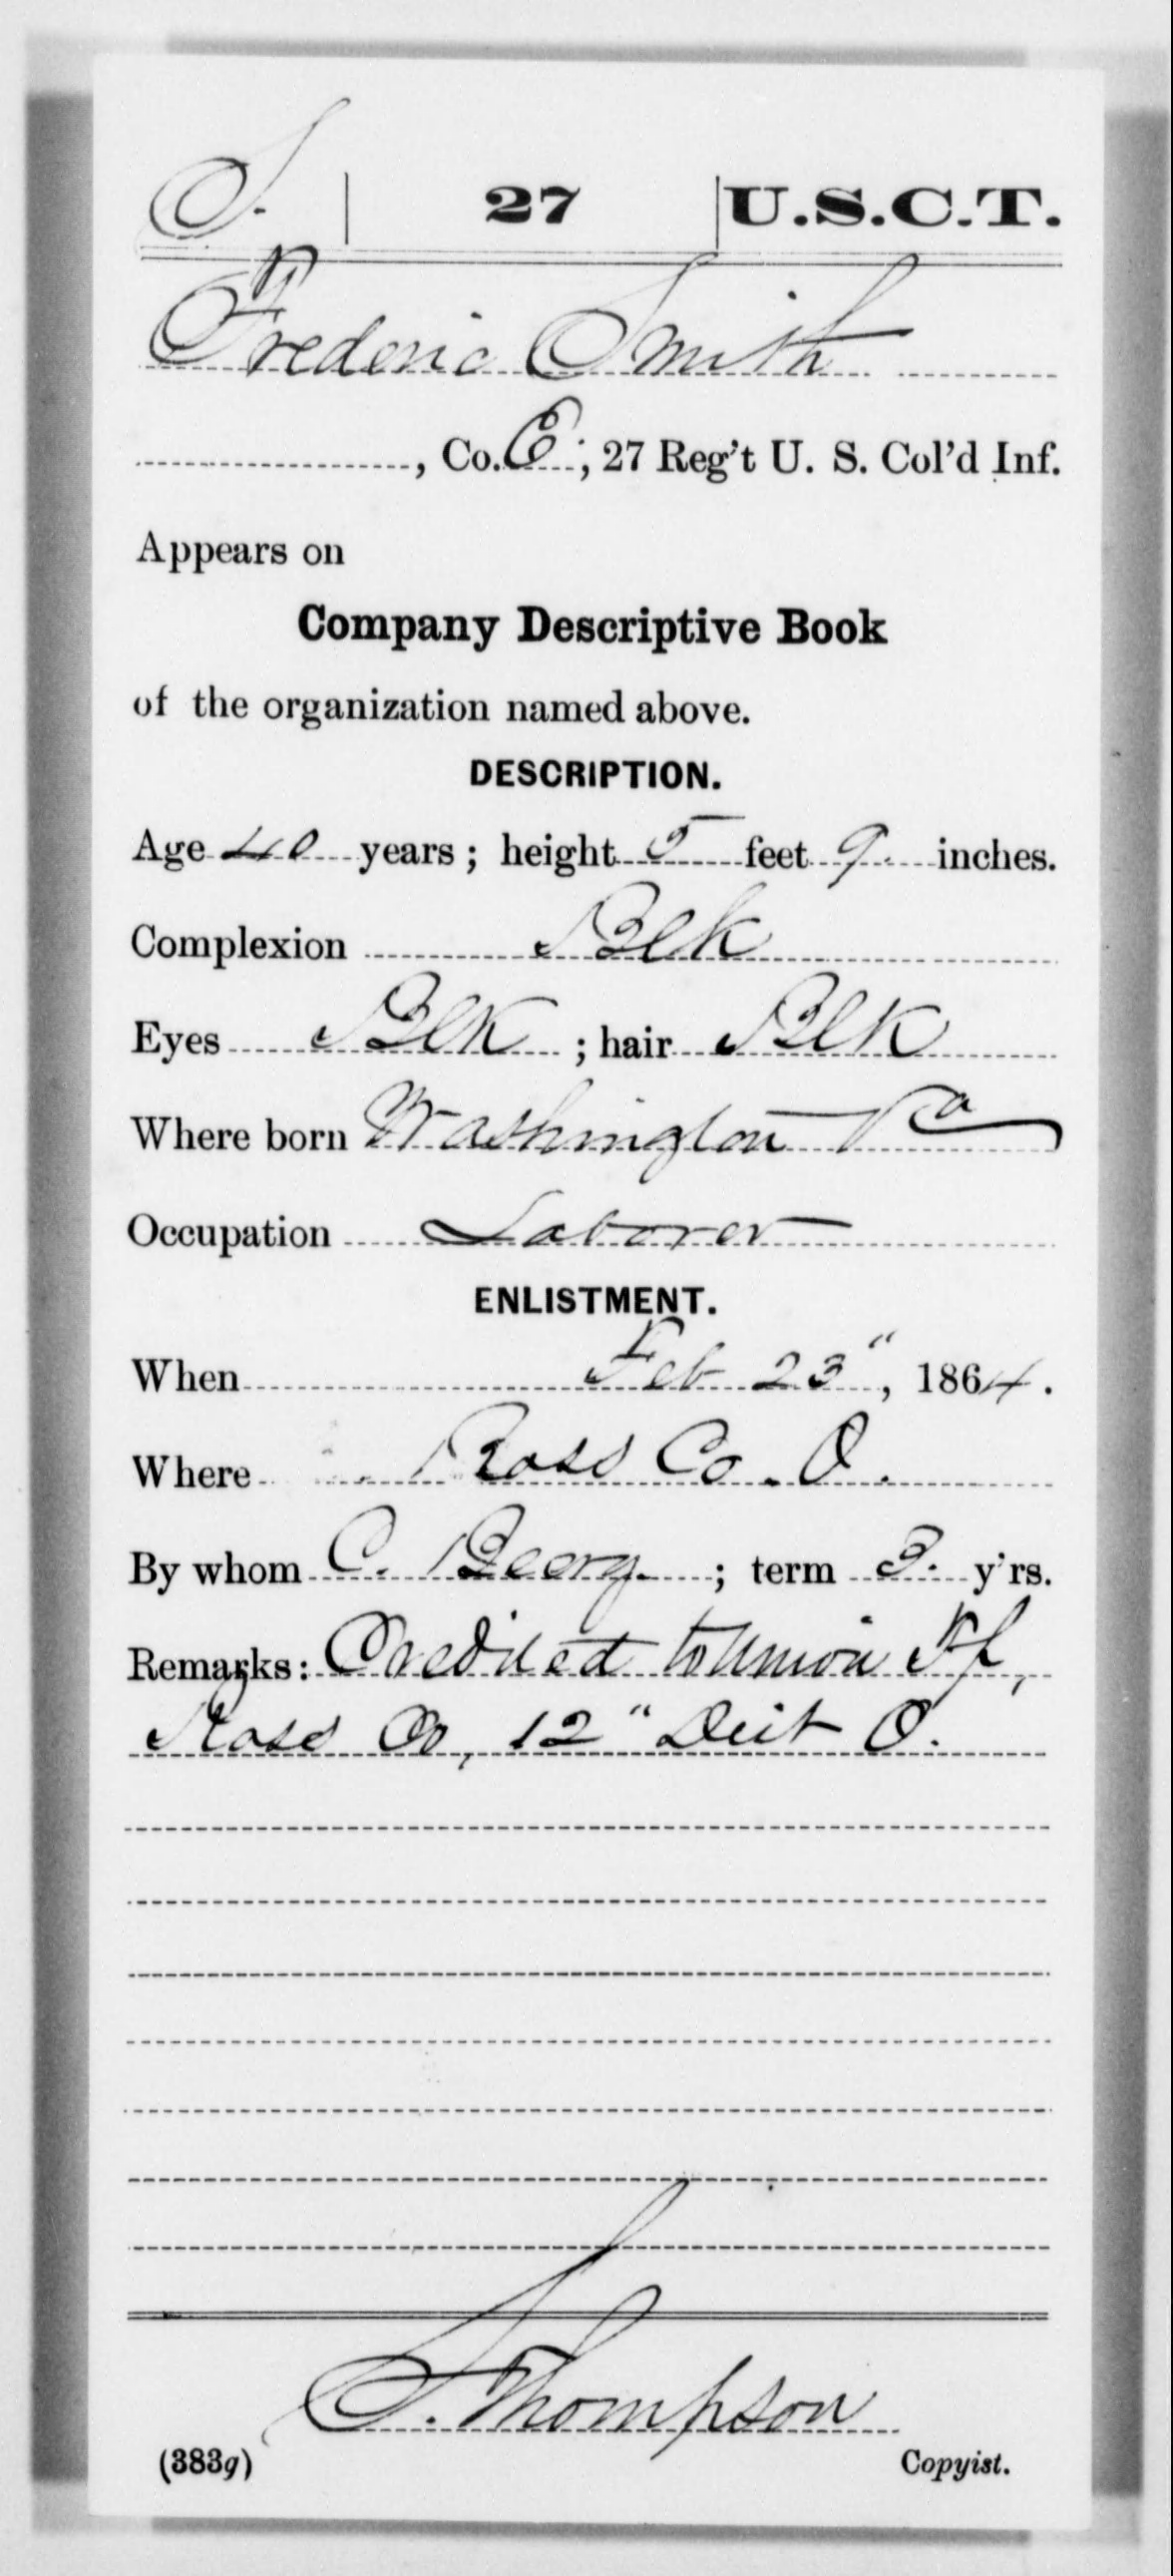 S. | 27 | U.S.C.T.
Frederic Smith
, Co. E; 27 Reg't U. S. Col'd Inf.
Appears on
Company Descriptive Book
of the organization named above.
DESCRIPTION.
Age 40 years; height 5 feet 9 inches.
Complexion Blk
Eyes Blk; hair Blk
Where born Washington Va
Occupation Laborer
ENLISTMENT.
When Feb 23", 1864.
Where Ross Co. O.
By whom C. ; term 3. y'rs.
Remarks: Credited to Union Tp,
Ross Co, 12" Dist O.
S. Thompson
(383g) Copyist.